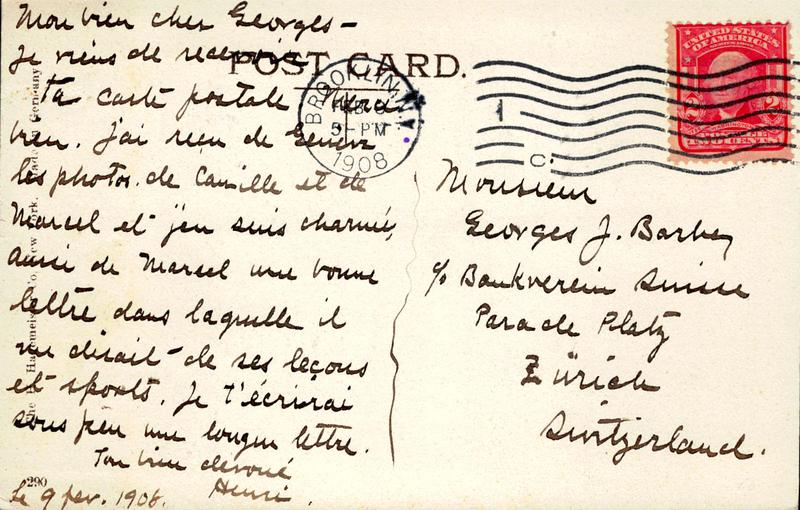 Mon bien cher Georges -
Je viens de recevoir
ta carte postale Merci
bien. J'ai reçu de Genève
les photos. de Camille et de
Marcel et j'en suis charmé,
aussi de Marcel une bonne
lettre dans laquelle il
me disait de ses leçons
et sports. Je t'écrirai
sous peu une longue lettre.
Ton bien dévoué
Henri.
le 9 fev. 1908.
290
POST CARD.
BROOKLYN, N.Y.
FEB 9
5-PM
1908
1
C.
UNITED STATES
OF AMERICA
2 2
TWO CENTS
Monsieur
Georges J. Barbey
c/o Bankverein Suisse
Parade Platz
Zürich
Switzerland.
New York.
Made in Germany